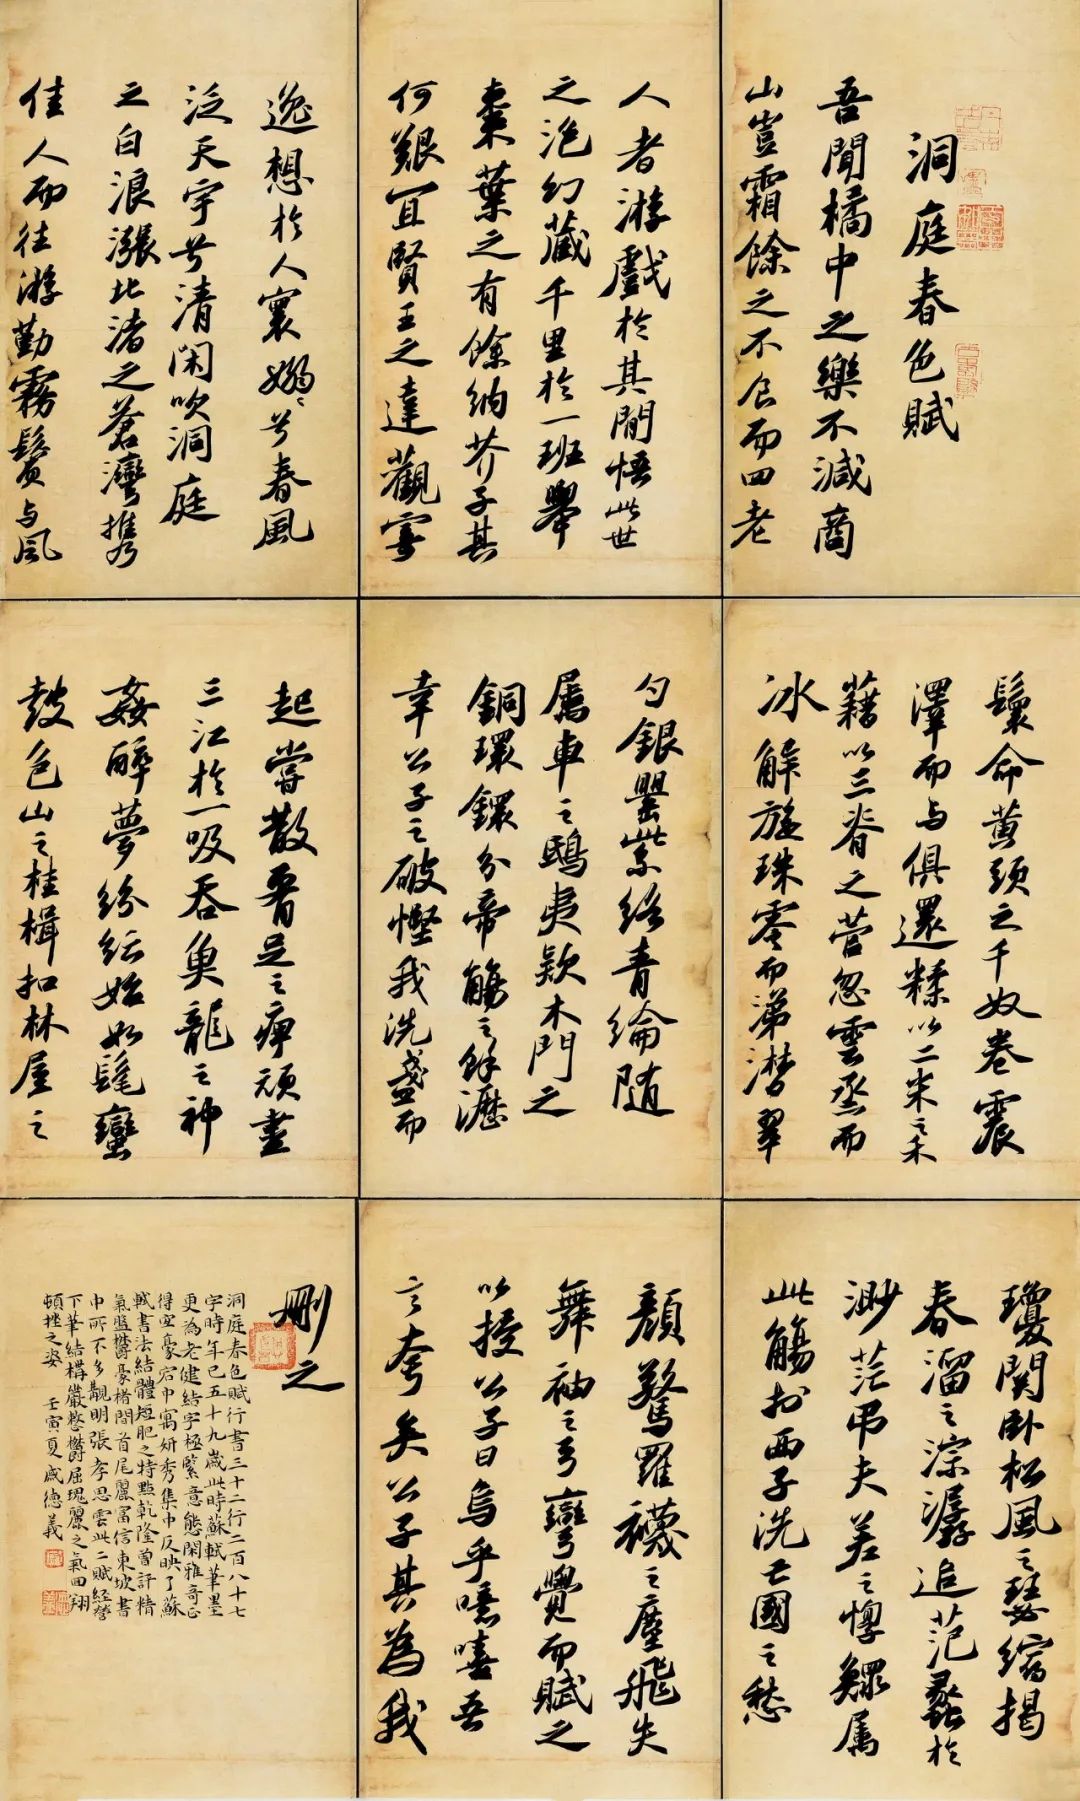 洞庭春色賦
吾聞橘中之樂不減商
山豈霜餘之不食而四老
人者游戲於其間悟此世
之泡幻藏千里於一班舉
棗葉之有餘納芥子其
何艱宜賢王之達觀寄
逸想於人寰嫋〻兮春風
泛天宇兮清閑吹洞庭
之白浪漲北渚之蒼灣携
佳人而往游勤霧鬢与風
鬟命黄頭之千奴卷震
澤而与俱還糅以二米之禾
藉以三脊之菅忽雲烝而
冰解旋珠零而涕潸翠
勺銀罌紫絡青綸随
属車之鴟夷欵木門之
銅環鐶分帝觴之餘瀝
幸公子之破慳我洗盞而
起嘗散腰足之痺頑盡
三江於一吸吞魚龍之神
姦醉夢紛紜始如髦蠻
鼓包山之桂楫扣林屋之
瓊関卧松風之瑟縮揭
春溜之淙潺追范蠡於
渺茫吊夫差之惸鰥属
此觴於西子洗亡國之愁
顏驚羅襪之塵飛失
舞袖之弓彎覺而賦之
以授公子曰烏乎噫嘻吾
言夸矣公子其為我
刪之
洞庭春色賦行書三十二行二百八十七
字時年已五十九歲此時蘇軾筆墨
更為老健結字極緊意態閑雅奇正
得宜豪宕中寓妍秀集中反映了蘇
軾書法結體短肥之特點乾隆曾評精
氣盤欝豪楮間首尾麗富信東坡書
中所不多覯明張孝思雲此二賦經營
下筆結構嚴整欝屈瑰麗之氣回翔
頓挫之姿 壬寅夏盛德義